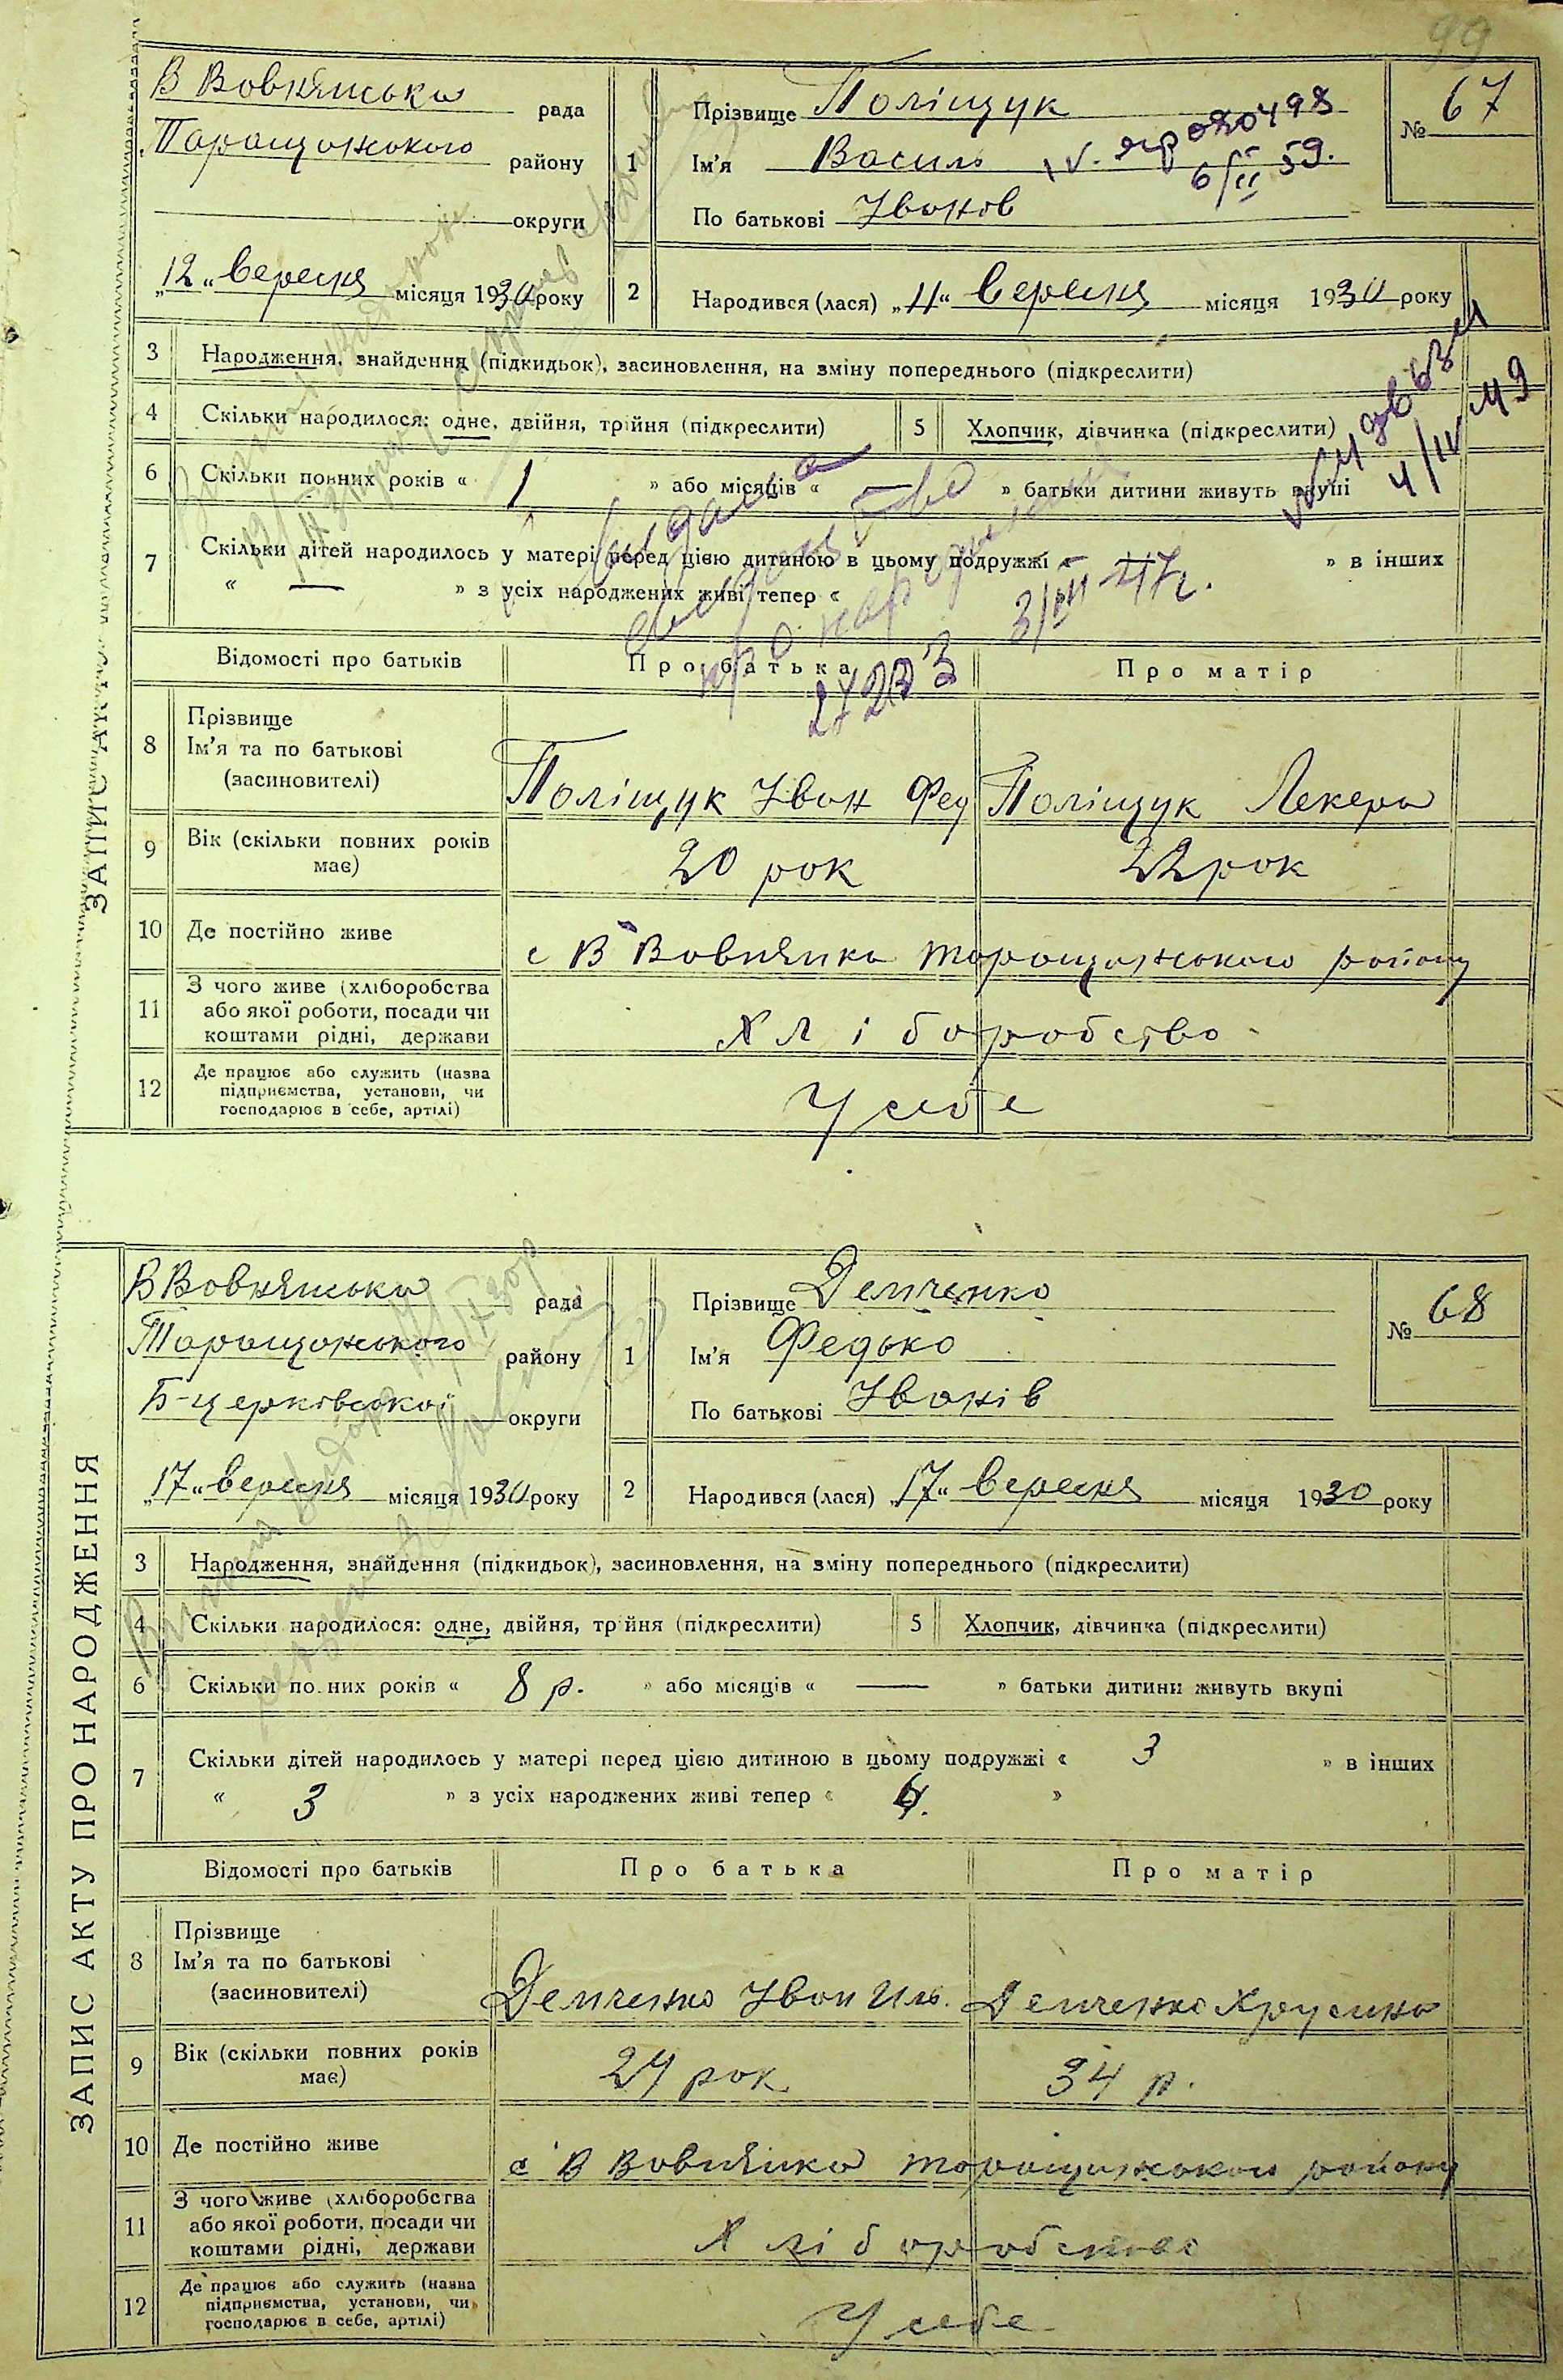 99
В Вовнянська рада
Таращанського району
округи
„12“ вересня місяця 1930 року
1 Прізвище Поліщук
Ім'я Василь
По батькові Іванов
№ 67
080498
6/II 59.
2 Народився (лася) „11“ вересня місяця 1930 року
3 Народження, знайдення (підкидьок), засиновлення, на зміну попереднього (підкреслити)
4 Скільки народилося: одне, двійня, трійня (підкреслити) 5 Хлопчик, дівчинка (підкреслити)
4/IV 49
6 Скільки повних років « 1 » або місяців « — » батьки дитини живуть вкупі
7 Скільки дітей народилось у матері перед цією дитиною в цьому подружжі « — » в інших
« — » з усіх народжених живі тепер «
про народження
Відомості про батьків Про батька Про матір
8 Прізвище
Ім'я та по батькові
(засиновителі)
Поліщук Іван Фед Поліщук Лекера
9 Вік (скільки повних років
має)
20 рок 22 рок
10 Де постійно живе с В Вовнянка Таращанського району
11 З чого живе (хліборобства
або якої роботи, посади чи
коштами рідні, держави
Хліборобство
12 Де працює або служить (назва
підприємства, установи, чи
господарює в себе, артілі)
У себе
ЗАПИС АКТУ ПРО НАРОДЖЕННЯ
В Вовнянська рада
Таращанського району
Б-церківської округи
„17“ вересня місяця 1930 року
1 Прізвище Демченко
Ім'я Федько
По батькові Іванів
№ 68
2 Народився (лася) „17“ вересня місяця 1930 року
3 Народження, знайдення (підкидьок), засиновлення, на зміну попереднього (підкреслити)
4 Скільки народилося: одне, двійня, трійня (підкреслити) 5 Хлопчик, дівчинка (підкреслити)
6 Скільки повних років « 8 р. » або місяців « — » батьки дитини живуть вкупі
7 Скільки дітей народилось у матері перед цією дитиною в цьому подружжі « 3 » в інших
« 3 » з усіх народжених живі тепер « »
Відомості про батьків Про батька Про матір
8 Прізвище
Ім'я та по батькові
(засиновителі)
Демченко Іван Иль. Демченко Хрусина
9 Вік (скільки повних років
має)
24 рок. 34 р.
10 Де постійно живе с В Вовнянка Таращанського району
11 З чого живе (хліборобства
або якої роботи, посади чи
коштами рідні, держави
Хліборобство
12 Де працює або служить (назва
підприємства, установи, чи
господарює в себе, артілі)
У себе